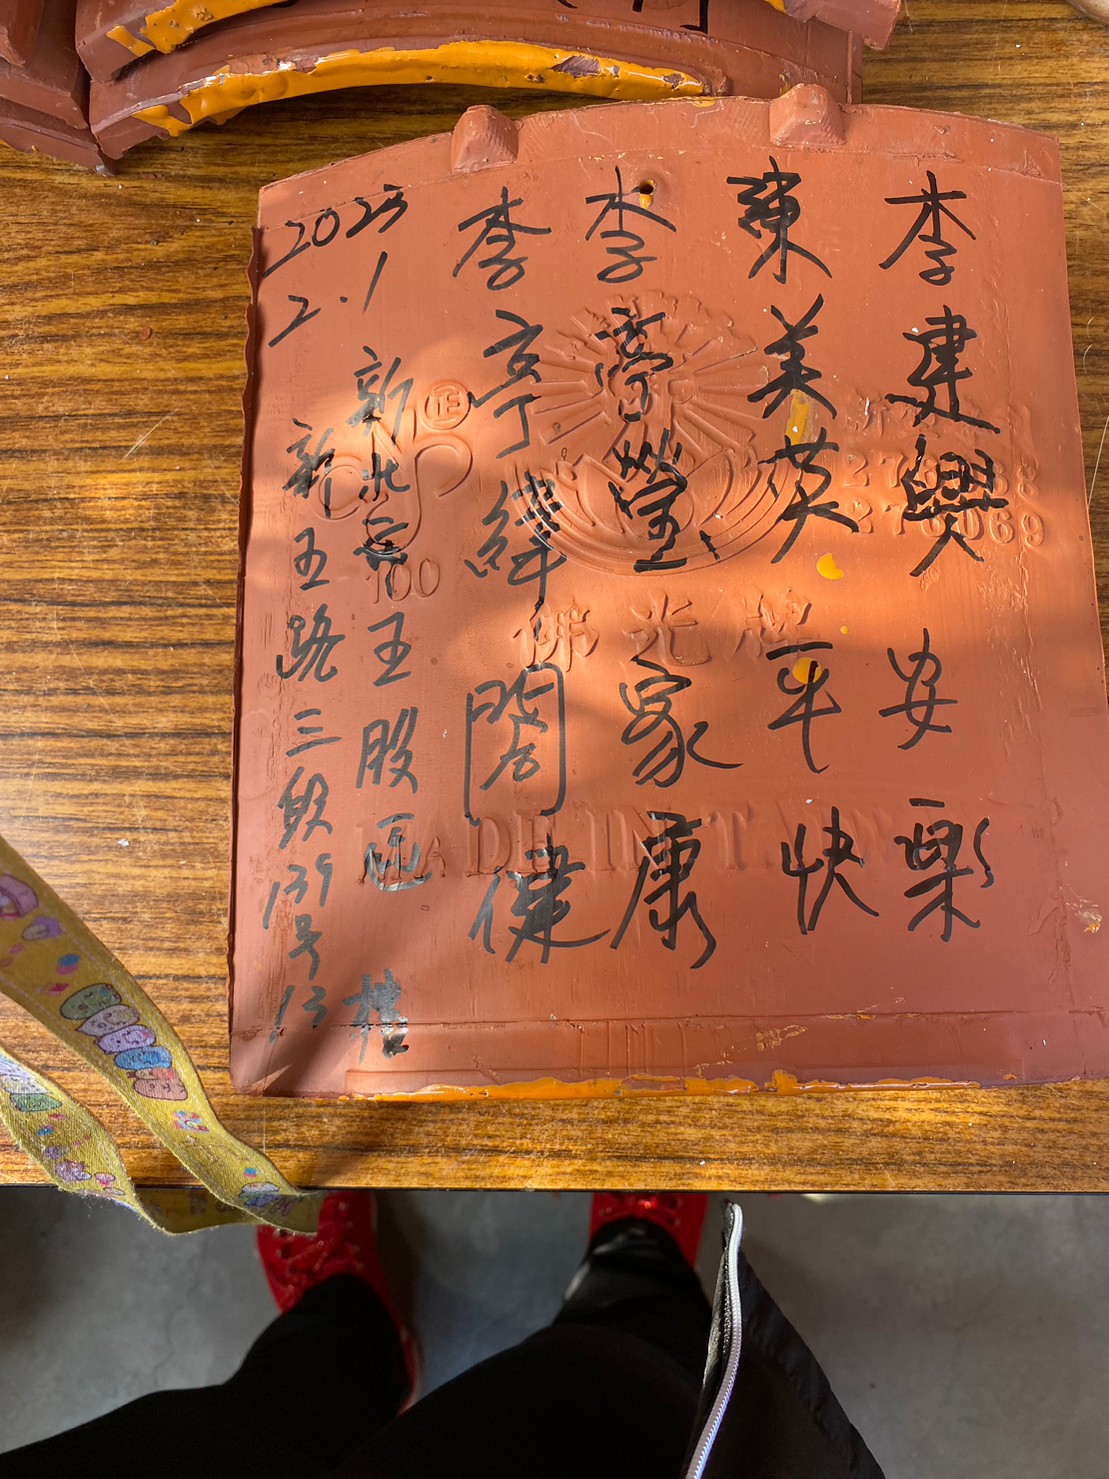 李建興
陳美英
李亭瑩
李亭緯
闔家平安
健康快樂
2023
2.1
新北市五股區
新五路三段139号13樓
正
100
佛光牌
MADE IN TAIWAN